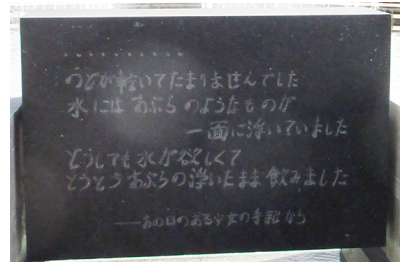 …………
のどが乾いてたまりませんでした
水にはあぶらのようなものが
一面に浮いていました
どうしても水が欲しくて
とうとうあぶらの浮いたまま飲みました
――あの日のある少女の手記から